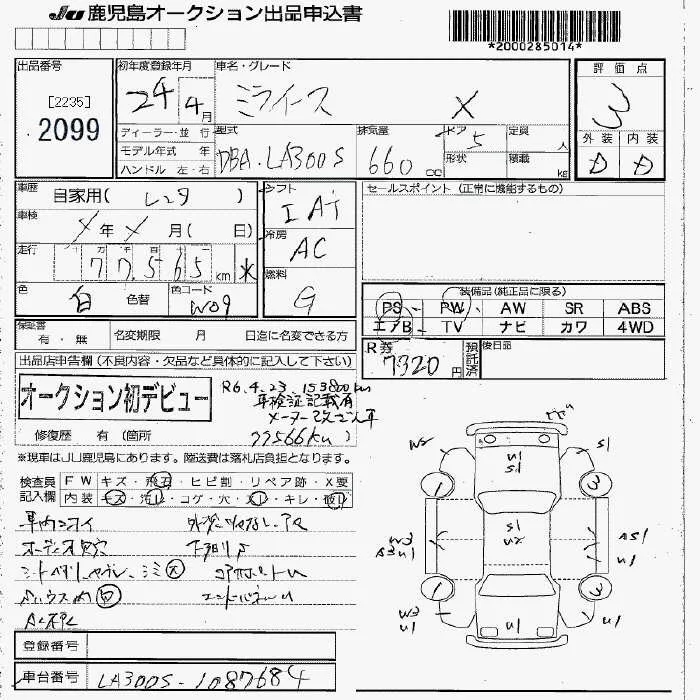 JU 鹿児島オークション出品申込書
*2000285014*
出品番号 初年度登録年月 車名・グレード 評価点
[2235]
2099
24 4月 ミライース X 3
ディーラー・並行 型式 排気量 ドア 定員 外装 内装
モデル年式 年 DBA・LA300S 660cc 5 人 D D
ハンドル 左・右 形状 積載 kg
車歴 自家用(レンタ) シフト セールスポイント(正常に機能するもの)
IAT
車検 メ年メ月(日) 冷房
AC
走行 77,565km * 燃料
G
色 白 色替 色コード W09
装備品(純正品に限る)
PS PW AW SR ABS
エアB TV ナビ カワ 4WD
保証書 有・無 名変期限 月 日迄に名変できる方
R券 7320円 預託済 後日品
出品店申告欄(不良内容・欠品など具体的に記入して下さい)
オークション初デビュー
R6.4.23. 153800km
車検証記載有
メーター改ざん車
77566km)
修復歴 有(箇所
※現車はJU鹿児島にあります。陸送費は落札店負担となります。
検査員記入欄 FW キズ・飛石・ヒビ割・リペア跡・X要
内装 キズ・汚れ・コゲ・穴・スレ・キレ・破れ
車内ニオイ
オーディオ欠穴
下回りS
コアサポートU
エンドパネルU
W2 S1
U1
S1
3 3
S1
U2
W3
A3U1
AS1
U1
1 3
W3
U1
U1 U1
登録番号
車台番号 LA300S-1087684